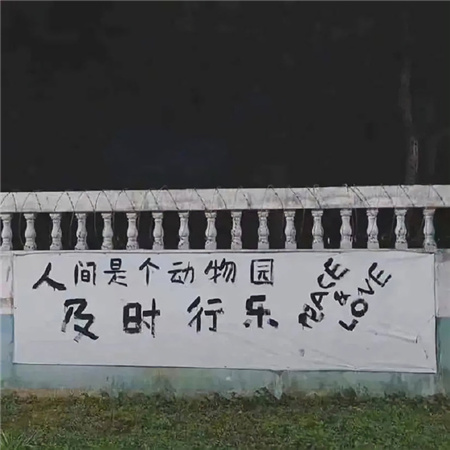 人间是个动物园
及时行乐
PEACE
&
LOVE